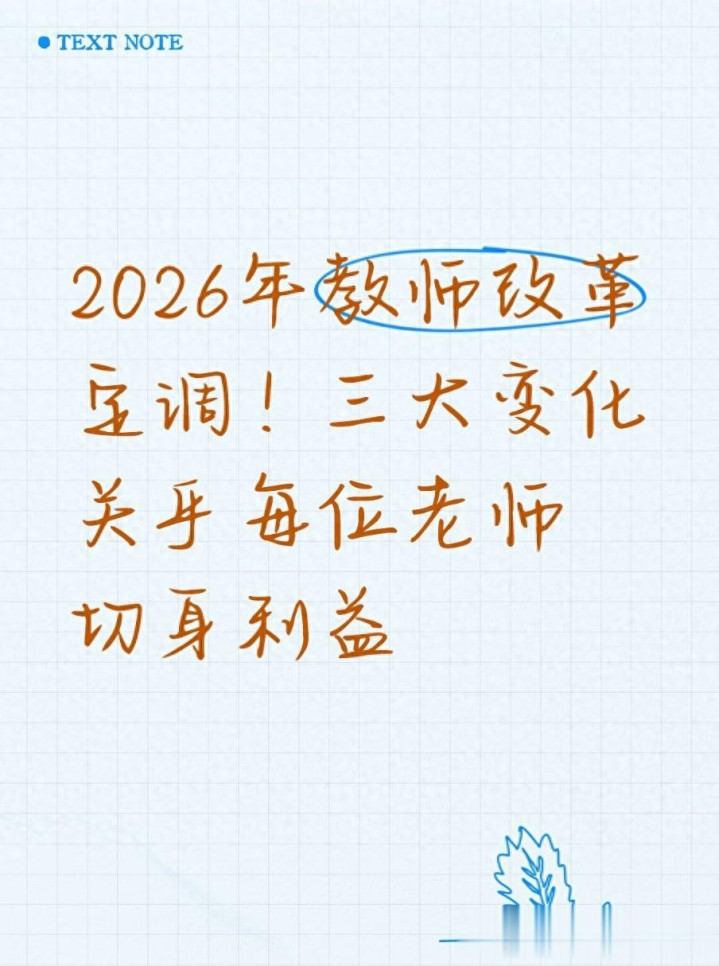 TEXT NOTE
2026年教师改革
定调！三大变化
关乎每位老师
切身利益